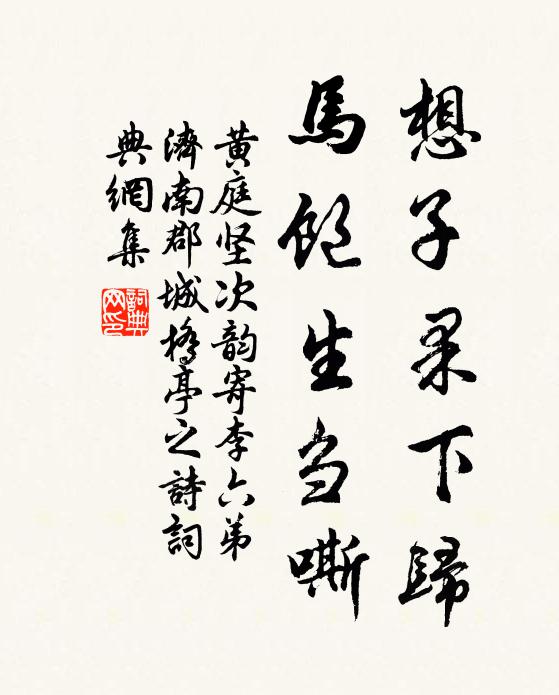 想子果下歸
馬飽生刍嘶
黄庭坚次韵寄李六弟
濟南郡城橋亭之詩詞
典網集
詞典网印